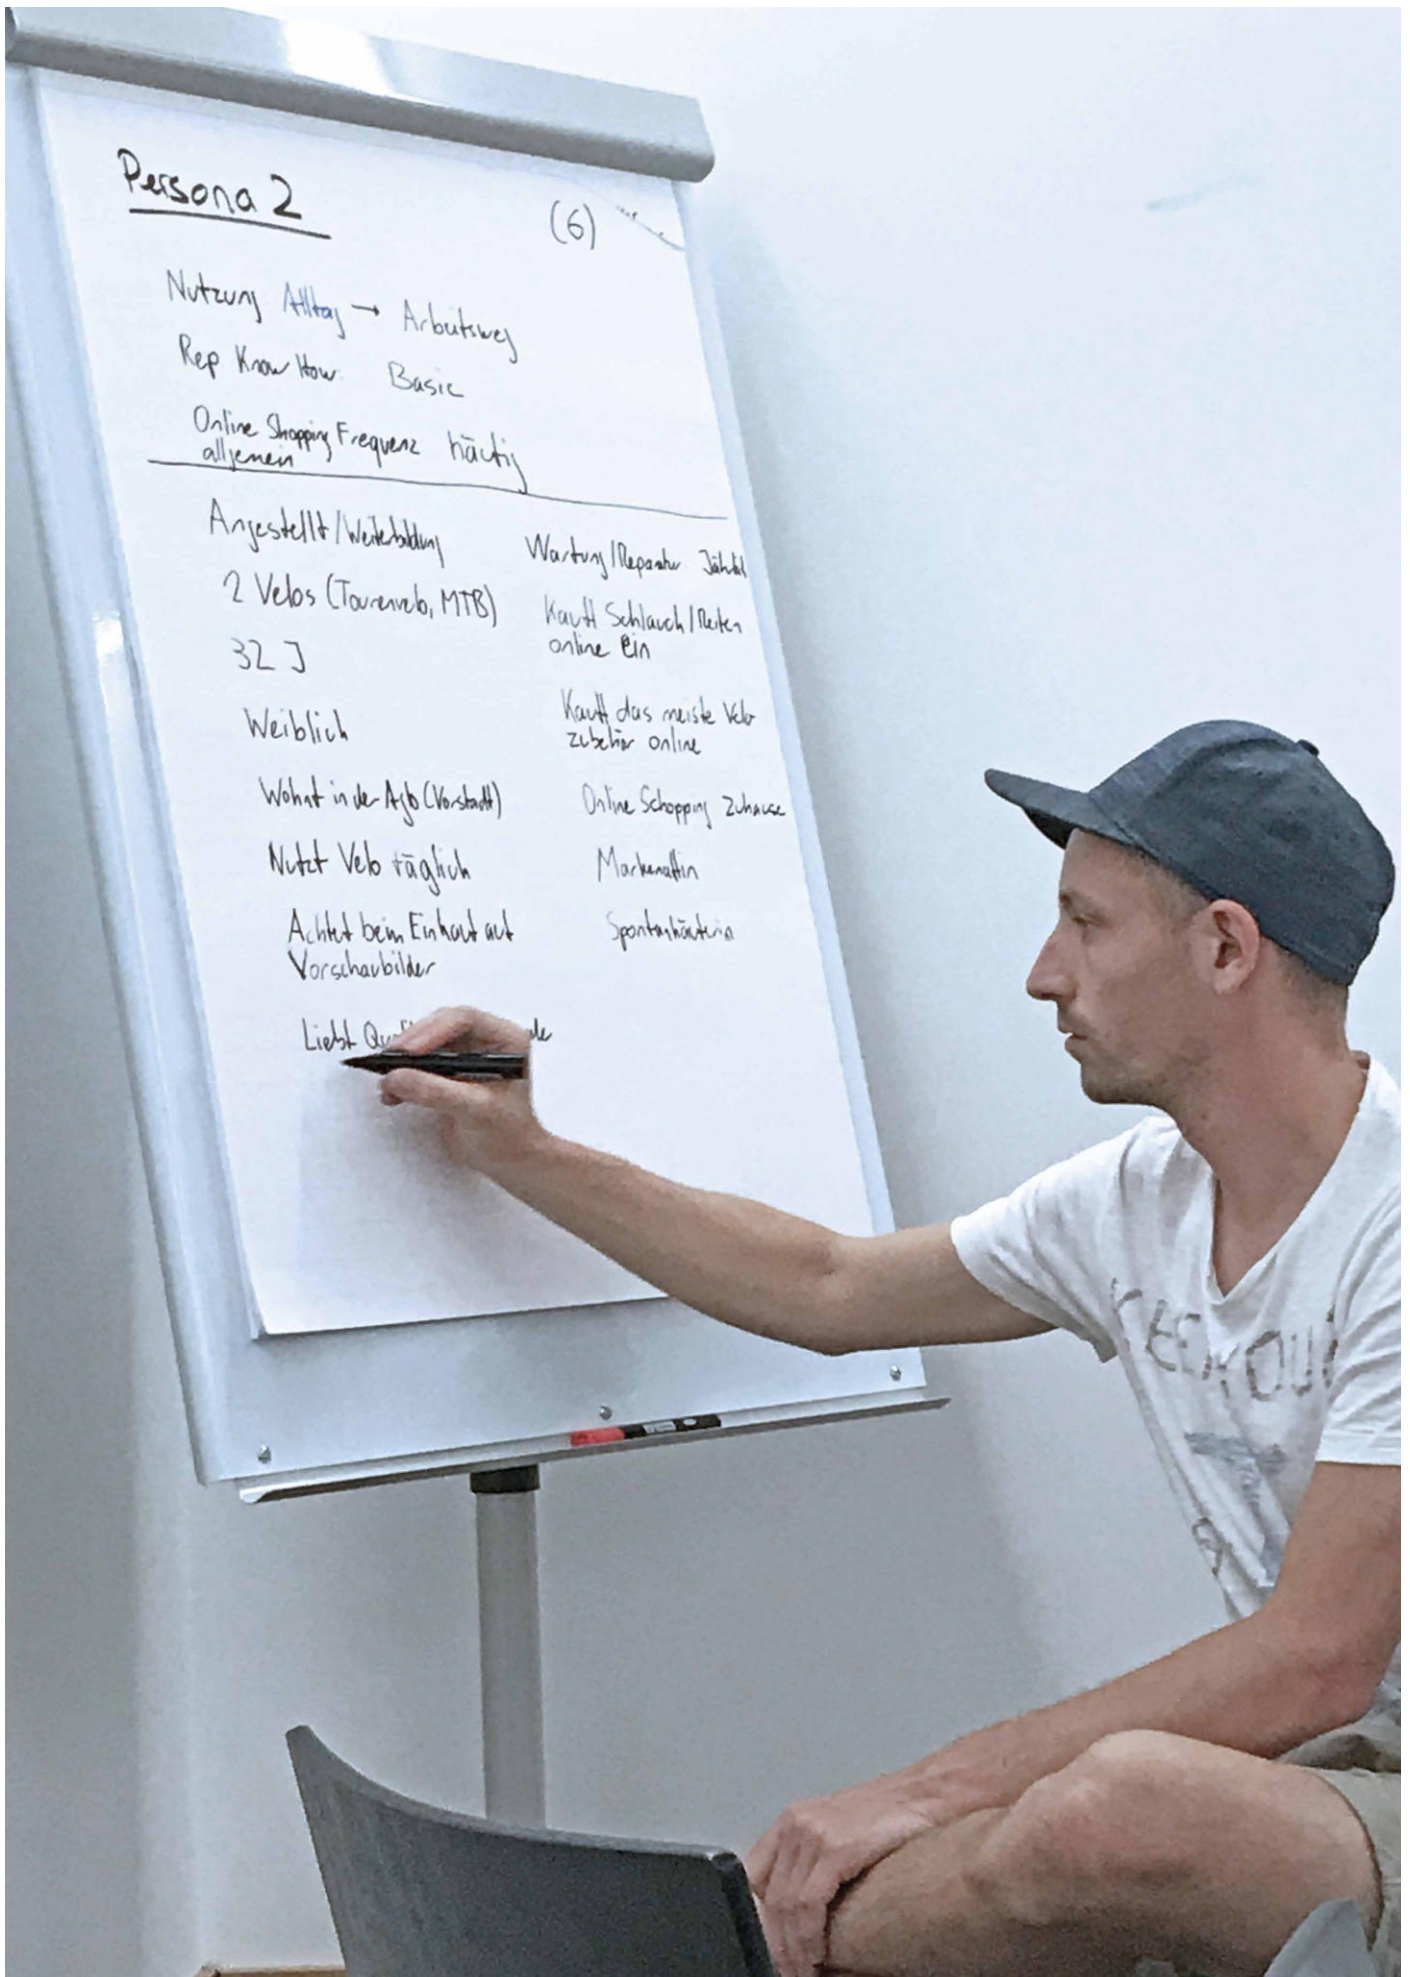 Persona 2
(6)
Nutzung Alltag → Arbeitsweg
Rep Know How: Basic
Online Shopping Frequenz häufig
allgemein
Angestellt/Weiterbildung
2 Velos (Tourenvelo, MTB)
32 J
Weiblich
Wohnt in der Agb (Vorstadt)
Nutzt Velo täglich
Achtet beim Einkauf auf
Vorschaubilder
Liebt
Wartung/Reparatur Jährlich
Kauft Schlauch/Reifen
online ein
Kauft das meiste Velo
zubehör online
Online Schopping Zuhause
Markenaffin
Spontankäuferin